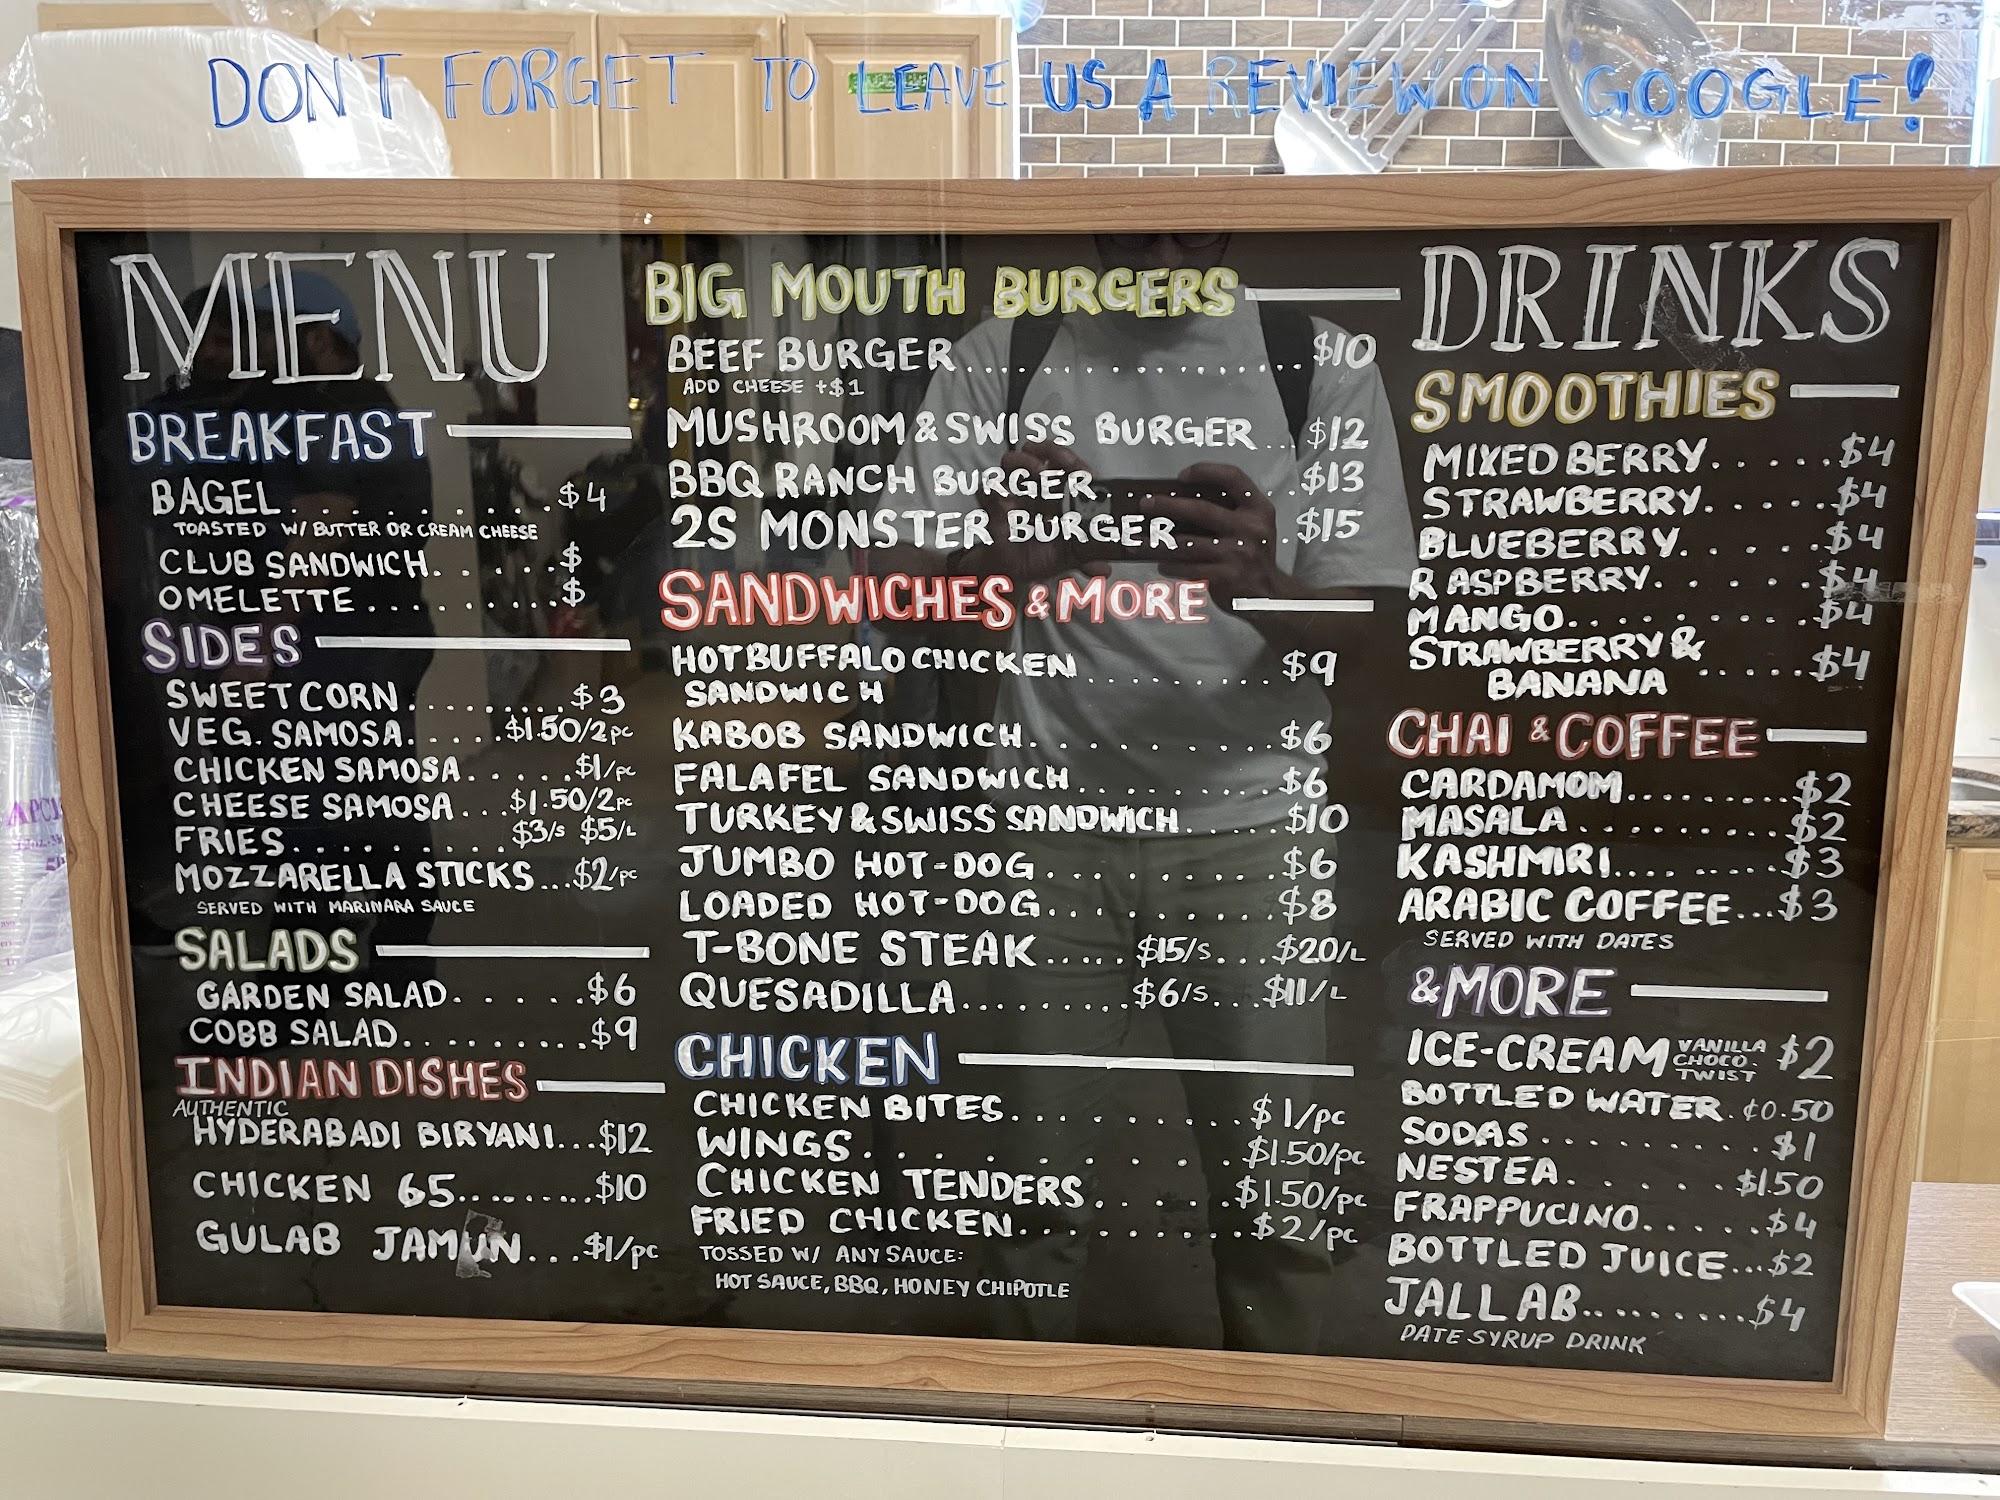 DON'T FORGET TO LEAVE US A REVIEW ON GOOGLE!
MENU
BREAKFAST
BAGEL..........$4
TOASTED W/ BUTTER OR CREAM CHEESE
CLUB SANDWICH......$
OMELETTE..........$
SIDES
SWEET CORN.........$3
VEG. SAMOSA.....$1.50/2pc
CHICKEN SAMOSA......$1/pc
CHEESE SAMOSA...$1.50/2pc
FRIES.........$3/S $5/L
MOZZARELLA STICKS...$2/pc
SERVED WITH MARINARA SAUCE
SALADS
GARDEN SALAD......$6
COBB SALAD.........$9
INDIAN DISHES
AUTHENTIC
HYDERABADI BIRYANI...$12
CHICKEN 65.........$10
GULAB JAMUN...$1/pc
BIG MOUTH BURGERS
BEEF BURGER.................$10
ADD CHEESE +$1
MUSHROOM & SWISS BURGER...$12
BBQ RANCH BURGER.........$13
2S MONSTER BURGER......$15
SANDWICHES & MORE
HOT BUFFALO CHICKEN.........$9
SANDWICH
KABOB SANDWICH.........$6
FALAFEL SANDWICH.........$6
TURKEY & SWISS SANDWICH.....$10
JUMBO HOT-DOG.........$6
LOADED HOT-DOG.........$8
T-BONE STEAK.....$15/S...$20/L
QUESADILLA.........$6/S...$11/L
CHICKEN
CHICKEN BITES.........$1/pc
WINGS.........$1.50/pc
CHICKEN TENDERS......$1.50/pc
FRIED CHICKEN.........$2/pc
TOSSED W/ ANY SAUCE:
HOT SAUCE, BBQ, HONEY CHIPOTLE
DRINKS
SMOOTHIES
MIXED BERRY......$4
STRAWBERRY......$4
BLUEBERRY......$4
RASPBERRY......$4
MANGO.........$4
STRAWBERRY &
BANANA.....$4
CHAI & COFFEE
CARDAMOM.........$2
MASALA.........$2
KASHMIRI.........$3
ARABIC COFFEE...$3
SERVED WITH DATES
& MORE
ICE-CREAM VANILLA CHOCO. TWIST $2
BOTTLED WATER.¢0.50
SODAS.........$1
NESTEA......$1.50
FRAPPUCINO.....$4
BOTTLED JUICE...$2
JALLAB.........$4
DATE SYRUP DRINK